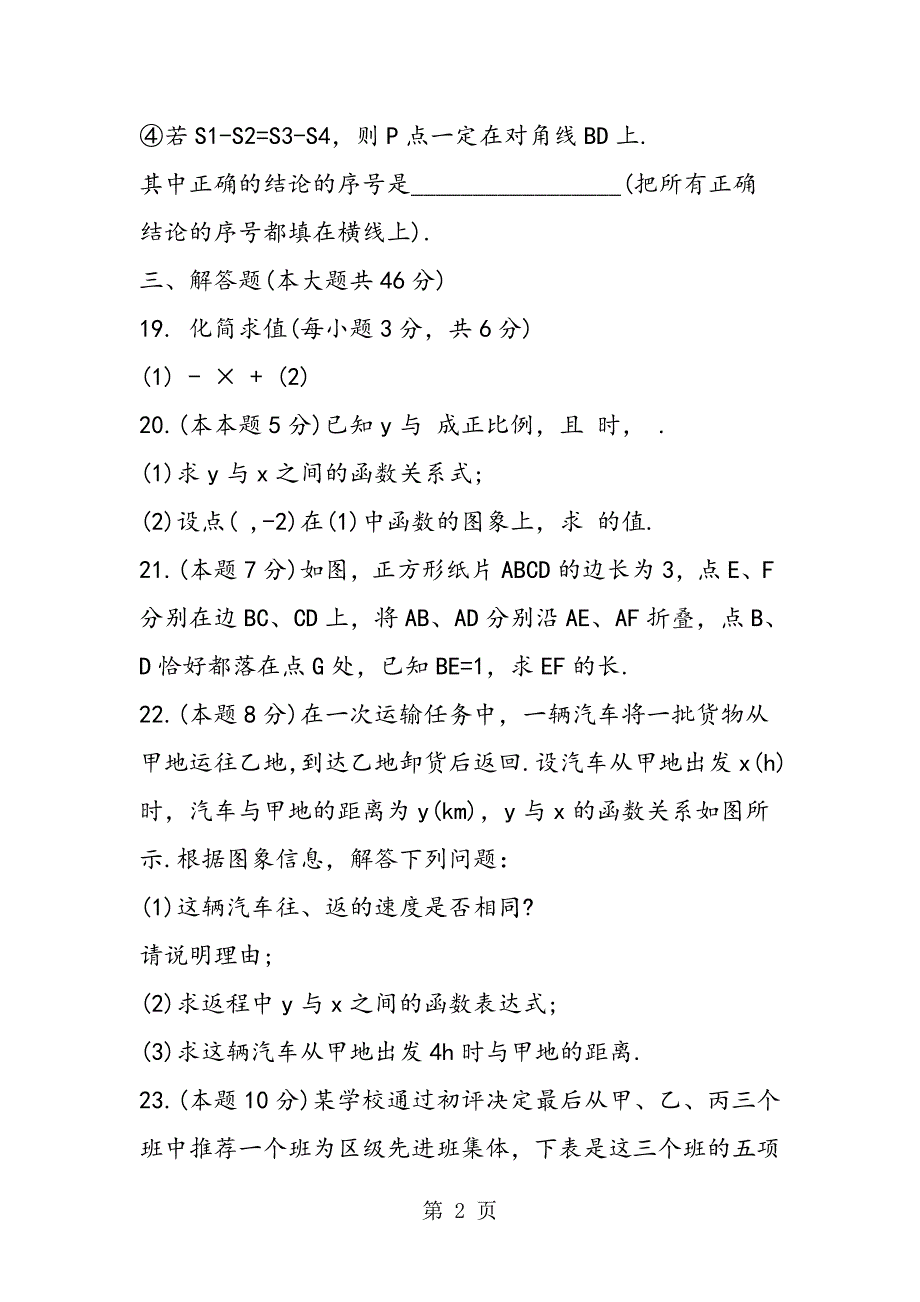 ④若S1-S2=S3-S4，则P点一定在对角线BD上.
其中正确的结论的序号是_________________(把所有正确
结论的序号都填在横线上).
三、解答题(本大题共46分)
19. 化简求值(每小题3分，共6分)
(1) - × + (2)
20.(本本题5分)已知y与 成正比例，且 时， .
(1)求y与x之间的函数关系式;
(2)设点( ,-2)在(1)中函数的图象上，求 的值.
21.(本题7分)如图，正方形纸片ABCD的边长为3，点E、F
分别在边BC、CD上，将AB、AD分别沿AE、AF折叠，点B、
D恰好都落在点G处，已知BE=1，求EF的长.
22.(本题8分)在一次运输任务中，一辆汽车将一批货物从
甲地运往乙地,到达乙地卸货后返回.设汽车从甲地出发x(h)
时，汽车与甲地的距离为y(km)，y与x的函数关系如图所
示.根据图象信息，解答下列问题：
(1)这辆汽车往、返的速度是否相同?
请说明理由;
(2)求返程中y与x之间的函数表达式;
(3)求这辆汽车从甲地出发4h时与甲地的距离.
23.(本题10分)某学校通过初评决定最后从甲、乙、丙三个
班中推荐一个班为区级先进班集体，下表是这三个班的五项
第 2 页